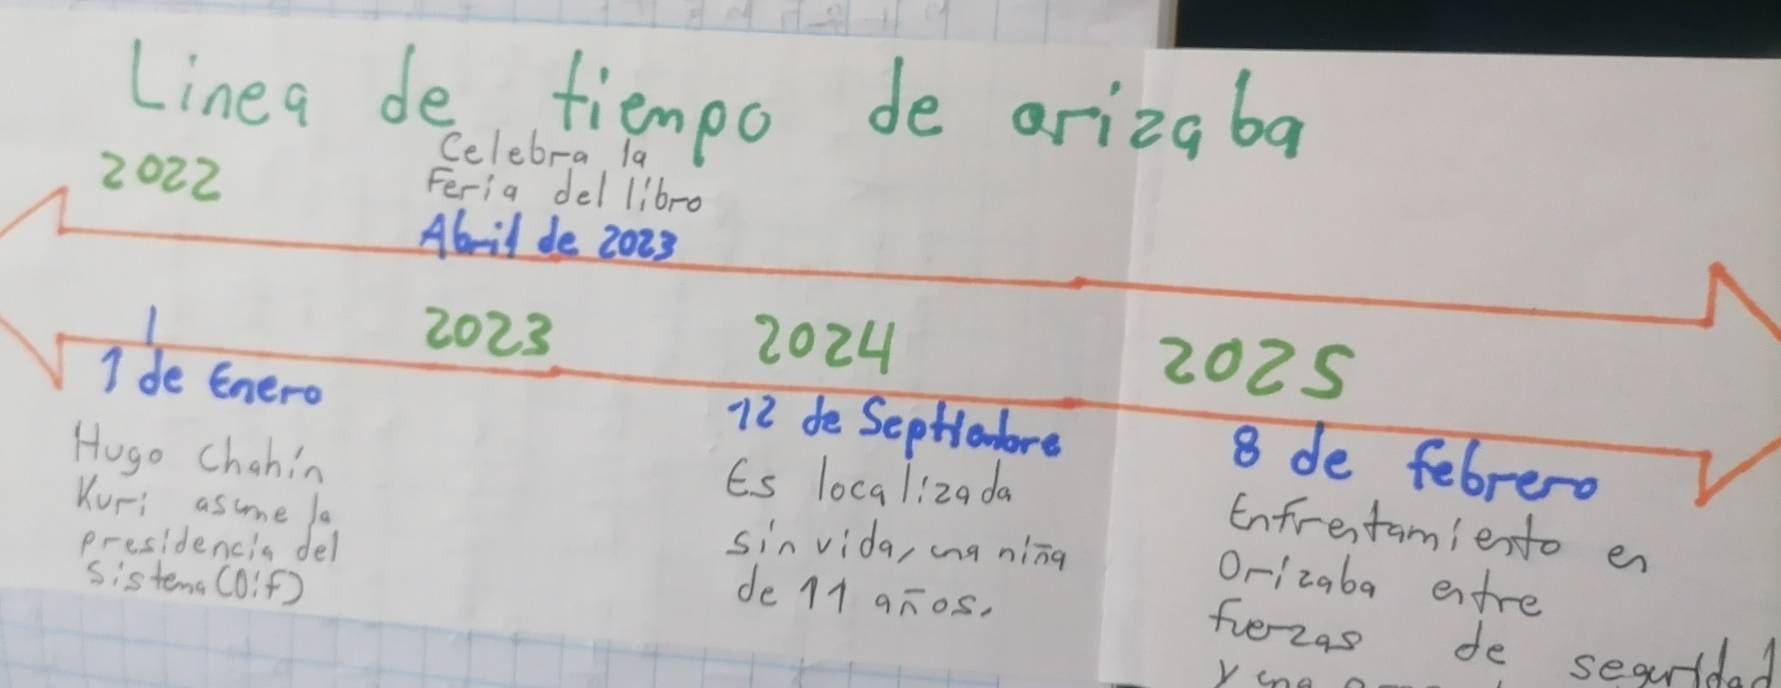 Linea de tiempo de orizaba
2022
Celebra la
Feria del libro
Abril de 2023
2023
2024
2025
1 de Enero
Hugo Chahín
Kuri asume la
presidencia del
sistema (Dif)
12 de Septiembre
Es localizada
sin vida, una niña
de 11 años.
8 de febrero
Enfrentamiento en
Orizaba entre
fuerzas de seguridad
y una